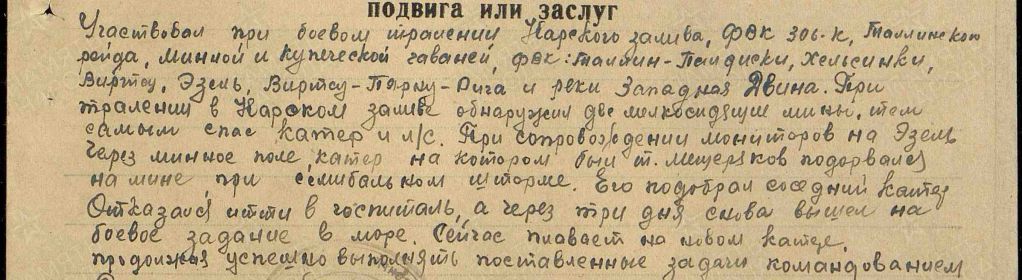 подвига или заслуг
Участвовал при боевом тралении Нарского залива, ФВК 306-К, Таллинского
рейда, минной и купеческой гаваней, ФВК: Таллин-Палдиски, Хельсинки,
Виртсу, Эзель, Виртсу-Пярну-Рига и реки Западная Двина. При
тралении в Нарском заливе обнаружил две мелкосидящие мины, тем
самым спас катер и л/с. При сопровождении мониторов на Эзель
через минное поле, катер на котором был т. Мещеряков подорвался
на мине, при семибальном шторме. Его подобрал соседний катер
Отказался итти в госпиталь, а через три дня снова вышел на
боевое задание в море. Сейчас плавает на новом катере,
продолжая успешно выполнять поставленные задачи командованием